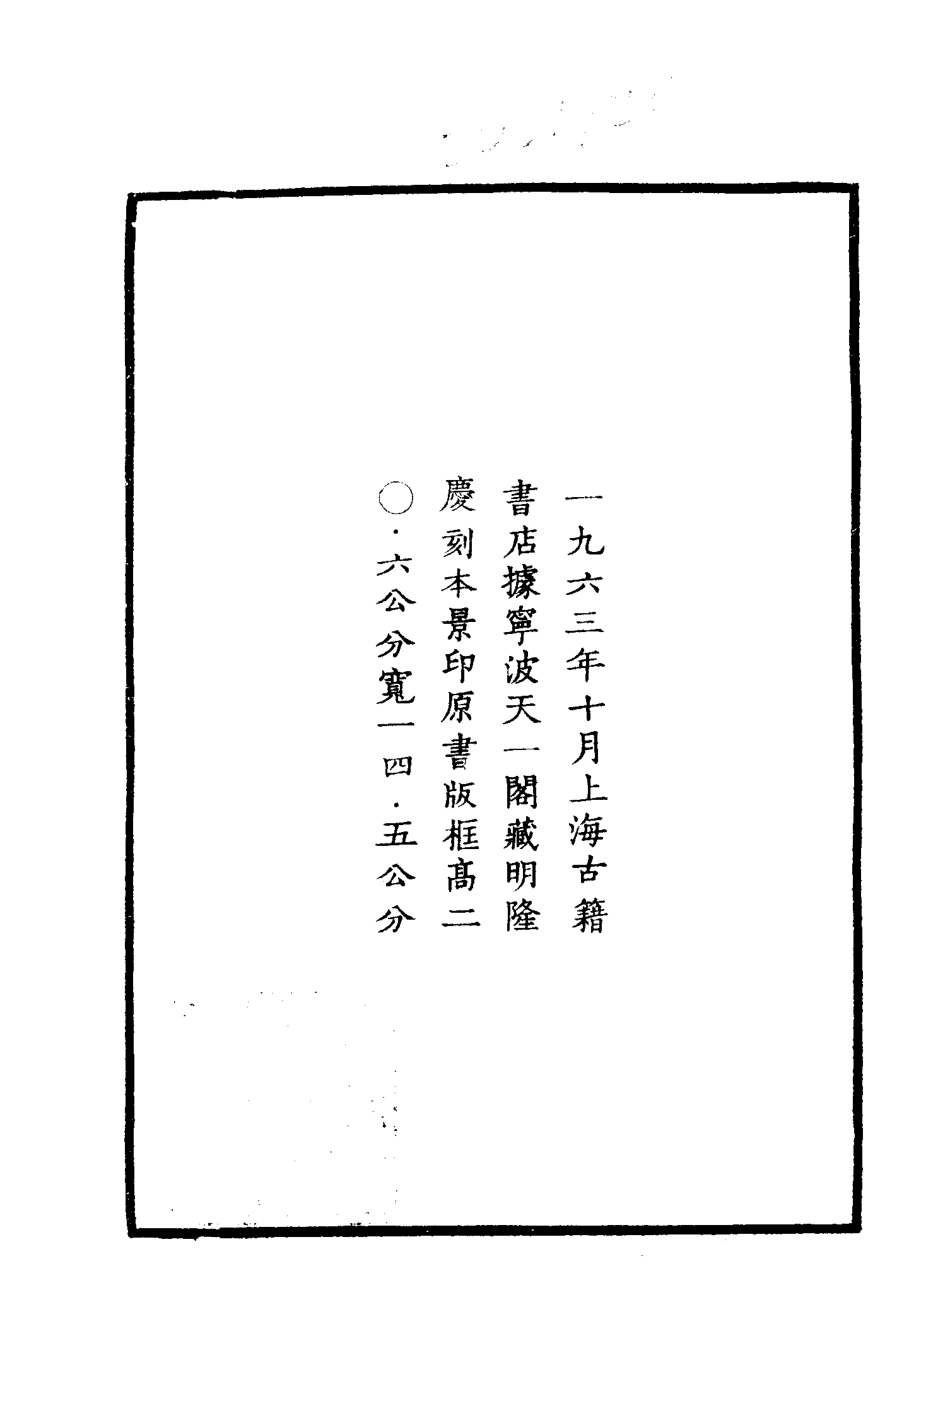 一九六三年十月上海古籍
書店據寧波天一閣藏明隆
慶刻本景印原書版框高二
〇·六公分寬一四·五公分